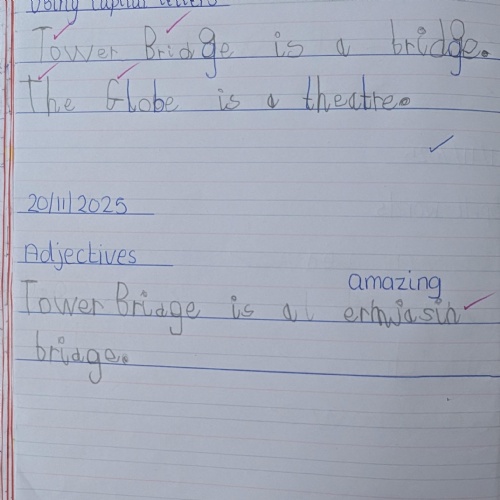 Using capital letters
Tower Bridge is a bridge.
The Globe is a theatre.
20/11/2025
Adjectives
amazing
Tower Bridge is a ermasin
bridge.